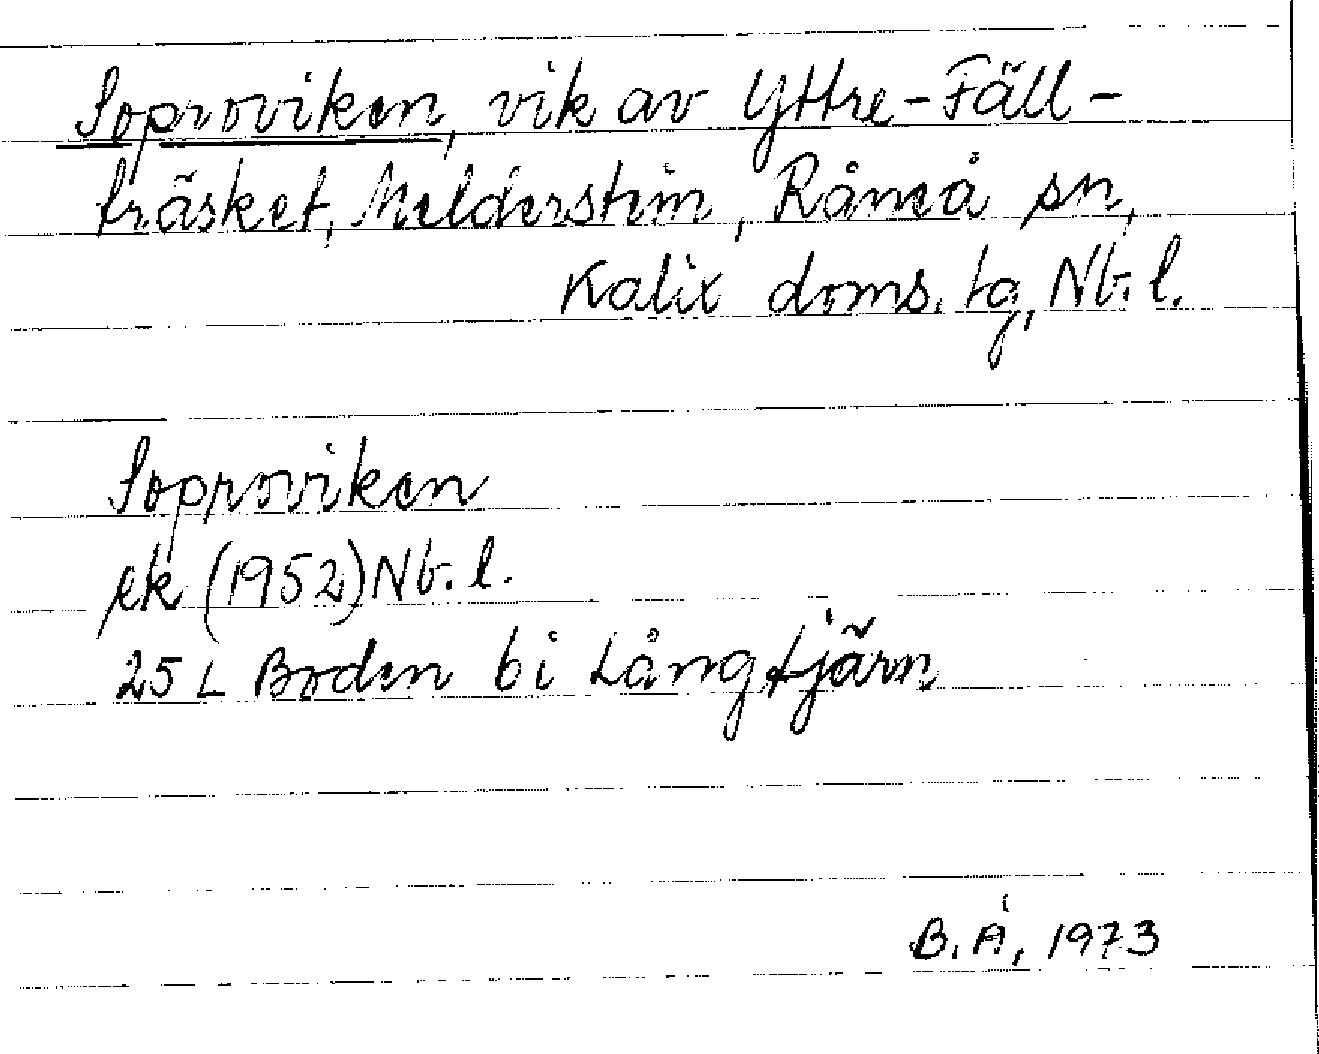 Soproviken, vik av Yttre-Fäll-
träsket, Melderstein, Råneå sn,
Kalix doms. tg, Nb. l.
Soproviken
ek (1952) Nb. l.
25 L Boden 6 i Långtjärn
B. Å, 1973